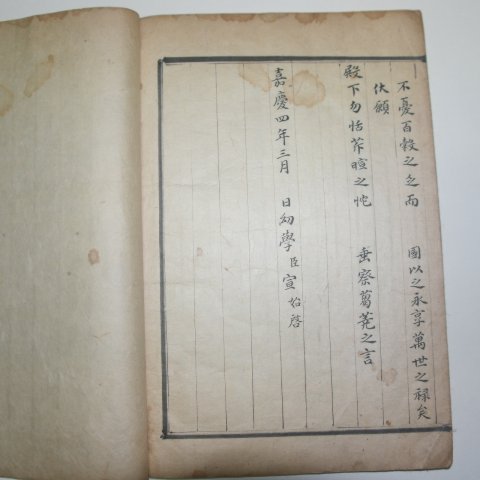 不憂百穀之乏而 國以之永享萬世之祿矣
伏願
殿下勿恬芹暄之忱 垂察蒭蕘之言
嘉慶四年三月 日幼學臣宣始啓